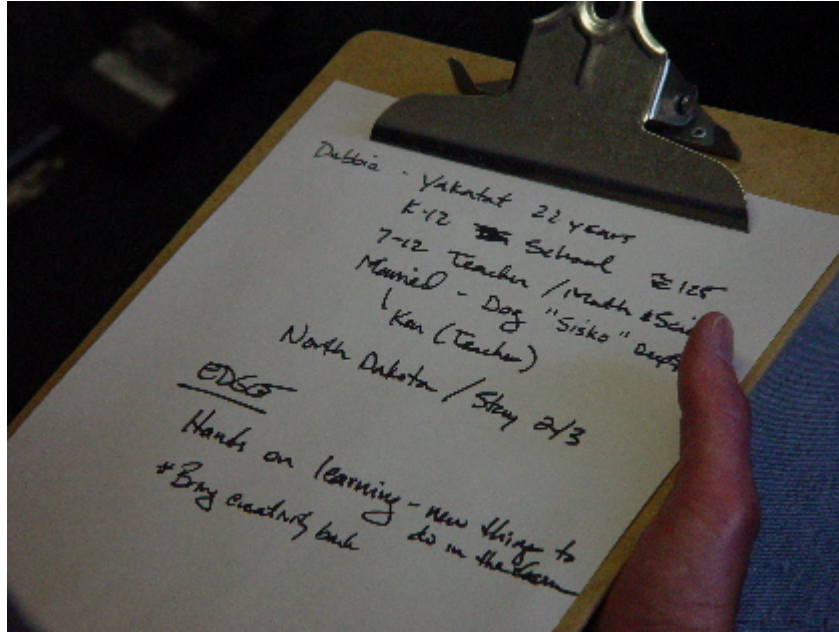 Debbie - Yakatat 22 years
K-12 School ≅ 125
7-12 Teacher / Math & Sci
Married - Dog "Sisko"
Ken (Teacher)
North Dakota / Stay 2/3
EDGE
Hands on learning - new things to
do in the
* Bring creativity back